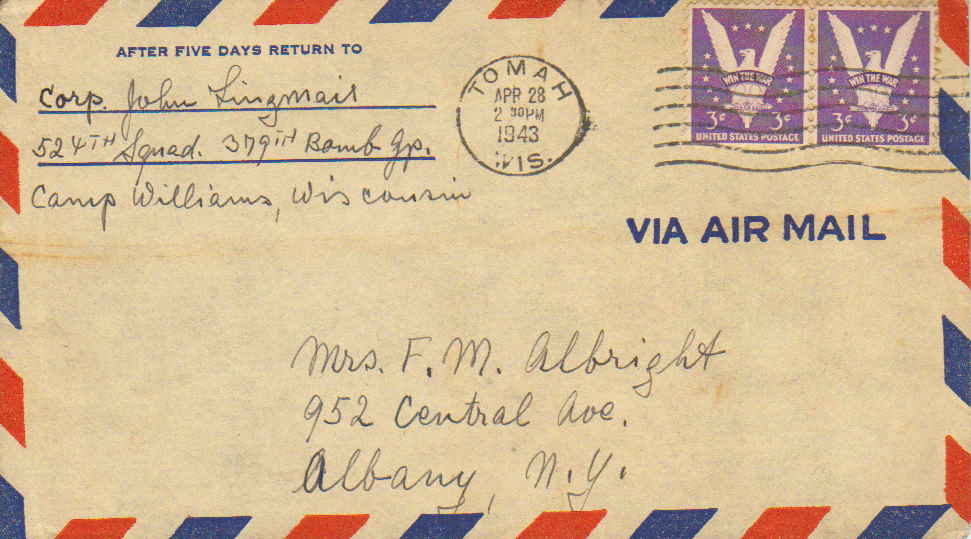 AFTER FIVE DAYS RETURN TO
Corp. John Lingmail
524TH Squad. 379TH Bomb Gp.
Camp Williams, Wisconsin
TOMAH
APR 28
2 30PM
1943
WIS.
WIN THE WAR
3¢ 3¢
UNITED STATES POSTAGE
WIN THE WAR
3¢ 3¢
UNITED STATES POSTAGE
VIA AIR MAIL
Mrs. F. M. Albright
952 Central Ave.
Albany, N.Y.